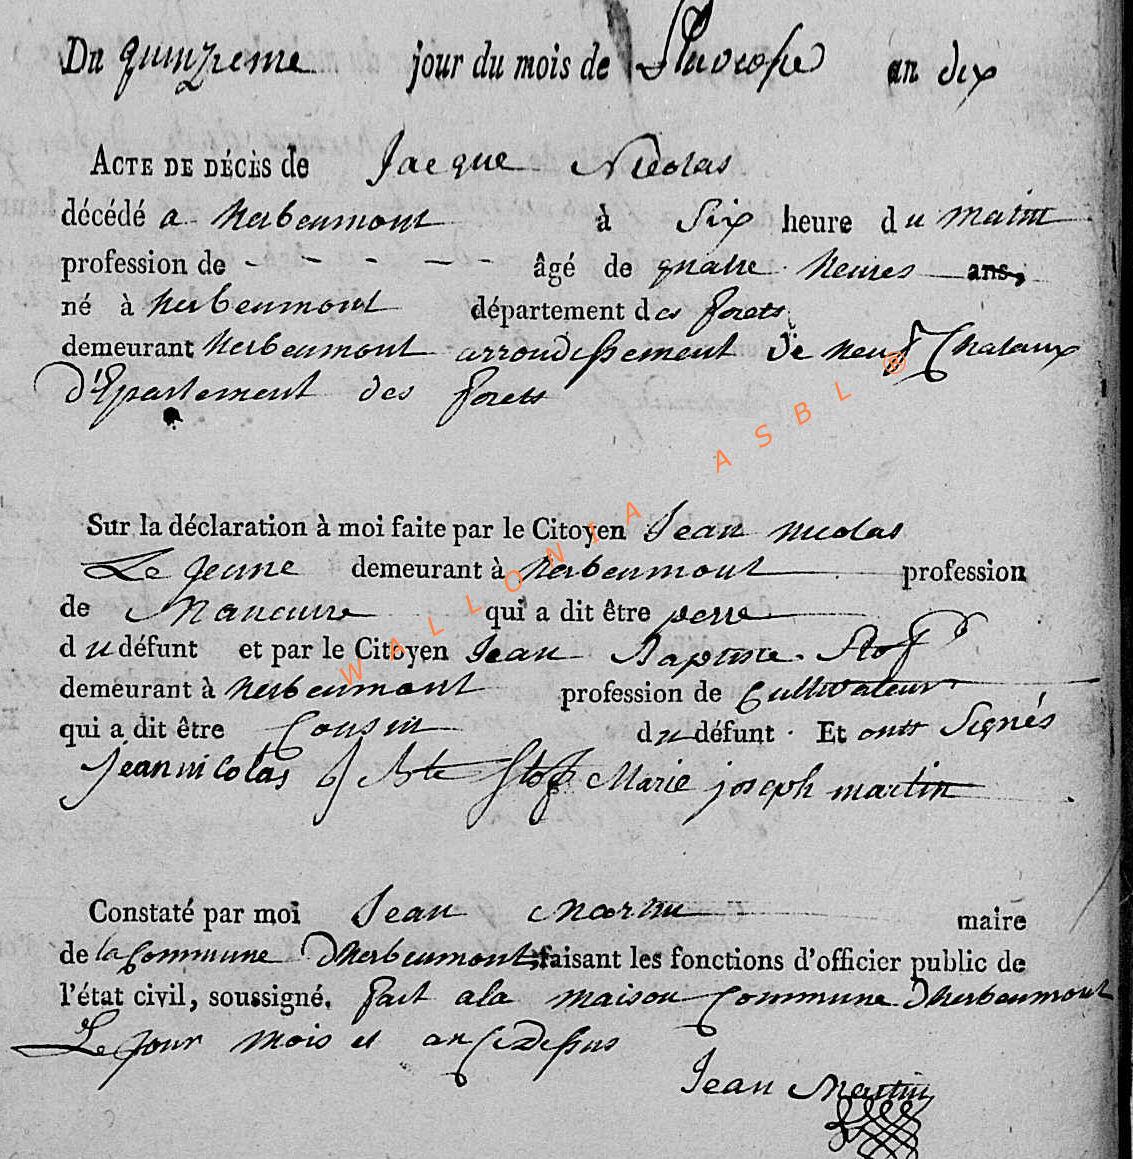 Du quinzieme jour du mois de Pluviose an dix
ACTE DE DÉCÈS de Jacque Nicolas
décédé a herbeumont à Six heure du matin
profession de - - - - - - âgé de quatre heures ans,
né à herbeumont département des forets
demeurant herbeumont arrondissement de neuf Chataux
d'Epartement des forets
Sur la déclaration à moi faite par le Citoyen Jean nicolas
Le Jeune demeurant à herbeumont profession
de Maneuvre qui a dit être perre
du défunt et par le Citoyen Jean Baptiste Stof
demeurant à herbeumont profession de Cultivateur
qui a dit être Cousin du défunt. Et ont Signés
jean nicolas j bte Stof Marie joseph martin
Constaté par moi Jean Martin maire
de la Commune Dherbeumont, faisant les fonctions d'officier public de
l'état civil, soussigné. fait a la maison Commune Dherbeumont
Le Jour mois et an Ci Dessus
Jean Martin
WALLONIA ASBL ®